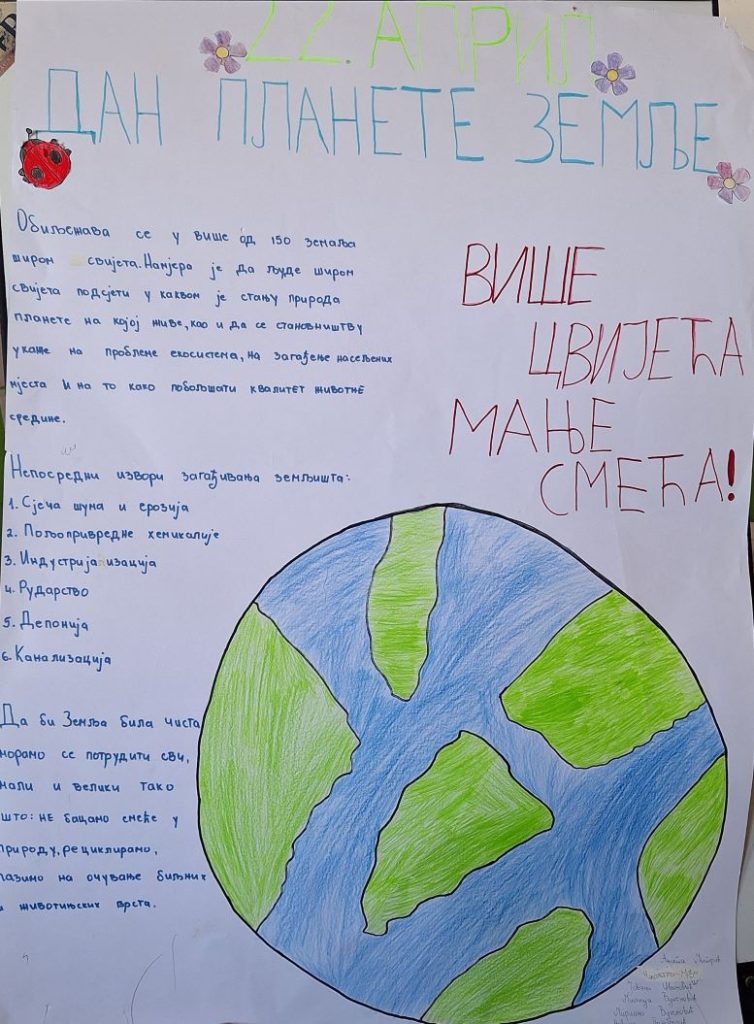 22. АПРИЛ
ДАН ПЛАНЕТЕ ЗЕМЉЕ
Обиљежава се у више од 150 земаља
широм свијета. Намјера је да људе широм
свијета подсјети у каквом је стању природа
планете на којој живе, као и да се становништву
укаже на проблеме екосистема, на загађење насељених
мјеста и на то како побољшати квалитет животне
средине.
ВИШЕ
ЦВИЈЕЋА
МАЊЕ
СМЕЋА!
Непосредни извори загађивања земљишта:
1. Сјеча шума и ерозија
2. Пољопривредне хемикалије
3. Индустријализација
4. Рударство
5. Депонија
6. Канализација
Да би Земља била чиста
морамо се потрудити сви,
мали и велики тако
што: не бацамо смеће у
природу, рециклирамо,
пазимо на очување биљних
и животињских врста.